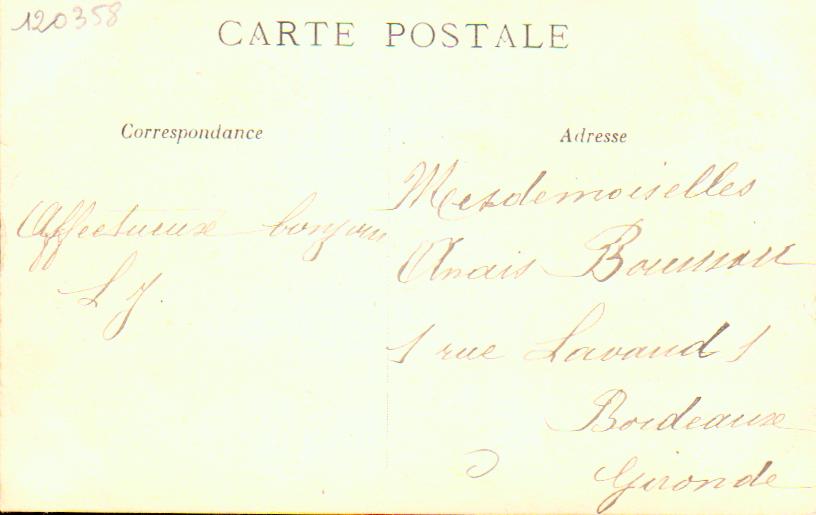 120358
CARTE POSTALE
Correspondance
Affectueux bonjour
L J.
Adresse
Mesdemoiselles
Anais
1 rue Lavaud 1
Bordeaux
Gironde